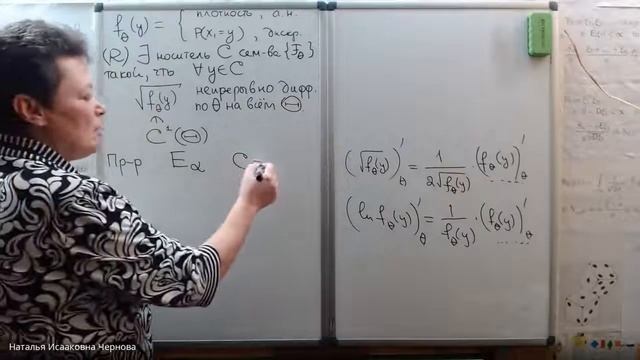 f_θ(y) = { плотность, а.н.
P(X₁=y), дискр.
(R) ∃ носитель C сем-ва {F_θ}
такой, что ∀ y∈C
√f_θ(y) непрерывно дифф.
по θ на всём Θ.
↑
C¹(Θ)
Пр-р E_α C
(√f_θ(y))'_θ = 1/(2√f_θ(y)) · (f_θ(y))'_θ
(ln f_θ(y))'_θ = 1/f_θ(y) · (f_θ(y))'_θ
Наталья Исааковна Чернова